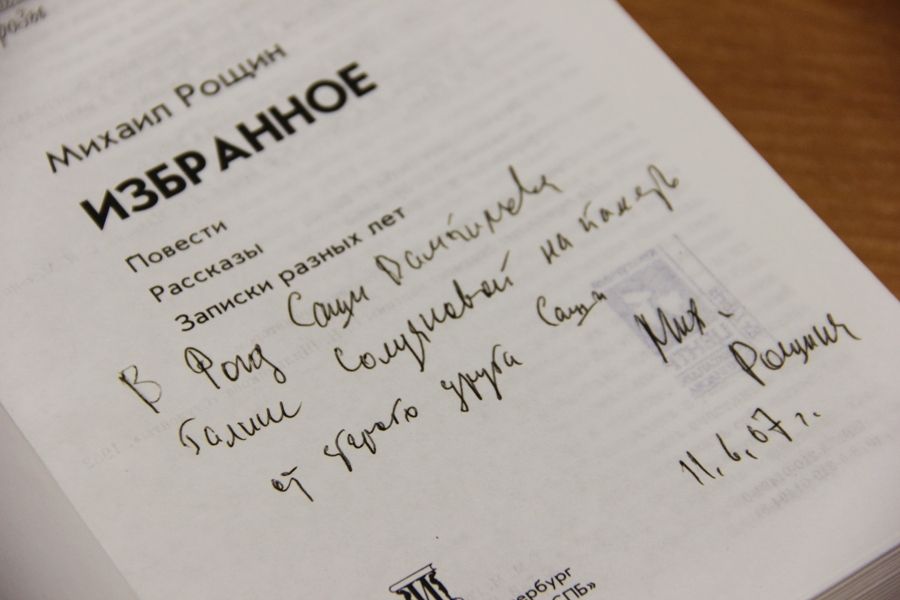 Михаил Рощин
ИЗБРАННОЕ
Повести
Рассказы
Записки разных лет
В Фонд Саши Вампилова
Галине Солуяновой на память
от старого друга Саши
Мих. Рощин
11.6.07 г.